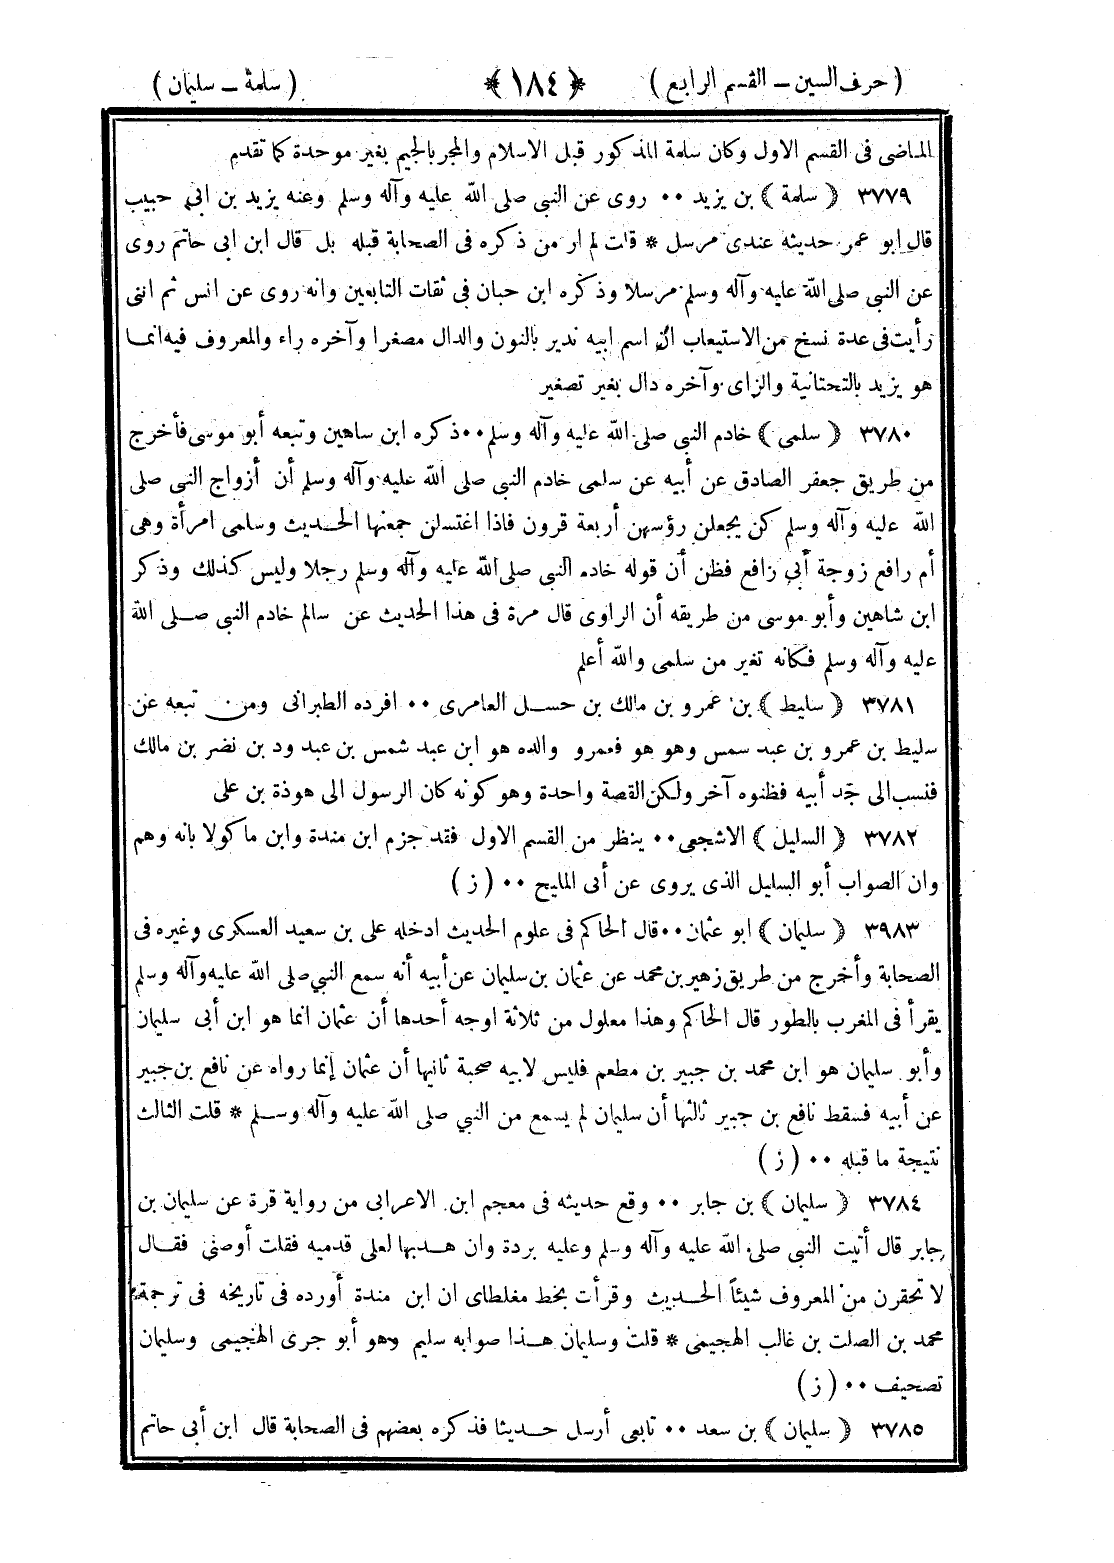 ( حرف السين ــ القسم الرابع ) ﴿ ١٨٤ ﴾ ( سلمة ــ سليمان )
الماضى فى القسم الاول وكان سلمة المذكور قبل الاسلام والمجر بالجيم بغير موحدة كما تقدم
٣٧٧٩ ( سلمة ) بن يزيد ٠٠ روى عن النبى صلى الله عليه وآله وسلم وعنه يزيد بن ابى حبيب
قال ابو عمر حديثه عندى مرسل * قلت لم ار من ذكره فى الصحابة قبله بل قال ابن ابى حاتم روى
عن النبى صلى الله عليه وآله وسلم مرسلا وذكره ابن حبان فى ثقات التابعين وانه روى عن انس ثم اننى
رأيت فى عدة نسخ من الاستيعاب ان اسم ابيه ندير بالنون والدال مصغرا وآخره راء والمعروف فيه انما
هو يزيد بالتحتانية والزاى وآخره دال بغير تصغير
٣٧٨٠ ( سلمى ) خادم النبى صلى الله عليه وآله وسلم ٠٠ ذكره ابن ساهين وتبعه أبو موسى فأخرج
من طريق جعفر الصادق عن أبيه عن سلمى خادم النبى صلى الله عليه وآله وسلم أن أزواج النبى صلى
الله عليه وآله وسلم كن يجعلن رؤسهن أربعة قرون فاذا اغتسلن جمعنها الحديث وسلمى امرأة وهى
أم رافع زوجة أبي رافع فظن أن قوله خادم النبى صلى الله عليه وآله وسلم رجلا وليس كذلك وذكر
ابن شاهين وأبو موسى من طريقه أن الراوى قال مرة فى هذا الحديث عن سالم خادم النبى صلى الله
عليه وآله وسلم فكانه تغير من سلمى والله أعلم
٣٧٨١ ( سليط ) بن عمرو بن مالك بن حسل العامرى ٠٠ افرده الطبرانى ومن تبعه عن
سليط بن عمرو بن عبد سمس وهو هو فعمرو والده هو ابن عبد شمس بن عبد ود بن نضر بن مالك
فنسب الى جد أبيه فظنوه آخر ولكن القصة واحدة وهو كونه كان الرسول الى هوذة بن على
٣٧٨٢ ( السليل ) الاشجعى ٠٠ ينظر من القسم الاول فقد جزم ابن مندة وابن ماكولا بانه وهم
وان الصواب أبو السليل الذى يروى عن أبى المليح ٠٠ ( ز )
٣٩٨٣ ( سليمان ) ابو عثمان ٠٠ قال الحاكم فى علوم الحديث ادخله على بن سعيد العسكرى وغيره فى
الصحابة وأخرج من طريق زهير بن محمد عن عثمان بن سليمان عن أبيه أنه سمع النبي صلى الله عليه وآله وسلم
يقرأ فى المغرب بالطور قال الحاكم وهذا معلول من ثلاثة اوجه أحدها أن عثمان انما هو ابن أبى سليمان
وأبو سليمان هو ابن محمد بن جبير بن مطعم فليس لابيه صحبة ثانيها أن عثمان إنما رواه عن نافع بن جبير
عن أبيه فسقط نافع بن جبير ثالثها أن سليمان لم يسمع من النبي صلى الله عليه وآله وسلم * قلت الثالث
نتيجة ما قبله ٠٠ ( ز )
٣٧٨٤ ( سليمان ) بن جابر ٠٠ وقع حديثه فى معجم ابن الاعرابى من رواية قرة عن سليمان بن
جابر قال أتيت النبي صلى الله عليه وآله وسلم وعليه بردة وان هدبها لعلى قدميه فقلت أوصنى فقال
لا تحقرن من المعروف شيئاً الحديث وقرأت بخط مغلطاى ان ابن مندة أورده فى تاريخه فى ترجمة
محمد بن الصلت بن غالب الهجيمى * قلت وسليمان هذا صوابه سليم وهو أبو جرى الهجيمى وسليمان
تصحيف ٠٠ ( ز )
٣٧٨٥ ( سليمان ) بن سعد ٠٠ تابعى أرسل حديثا فذكره بعضهم فى الصحابة قال ابن أبى حاتم